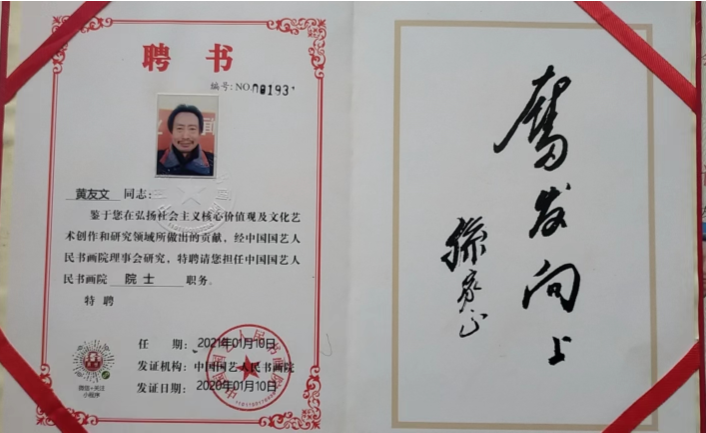 聘书
编号:NO.00193
黄友文 同志:
鉴于您在弘扬社会主义核心价值观及文化艺
术创作和研究领域所做出的贡献,经中国国艺人
民书画院理事会研究,特聘请您担任中国国艺人
民书画院 院士 职务。
特聘
任 期:2021年01月10日
发证机构:中国国艺人民书画院
发证日期:2020年01月10日
微信·关注
小程序
奮发向上
孫家正